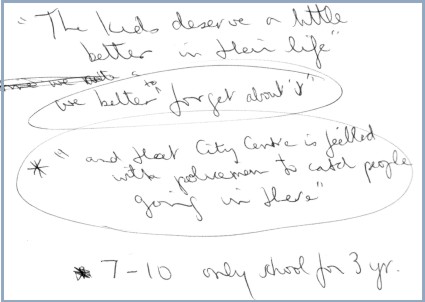 "The kids deserve a little
better in their life"
we better to "forget about it"
* " and that City Centre is filled
with policeman to catch people
going in there"
* 7-10 only school for 3 yr.